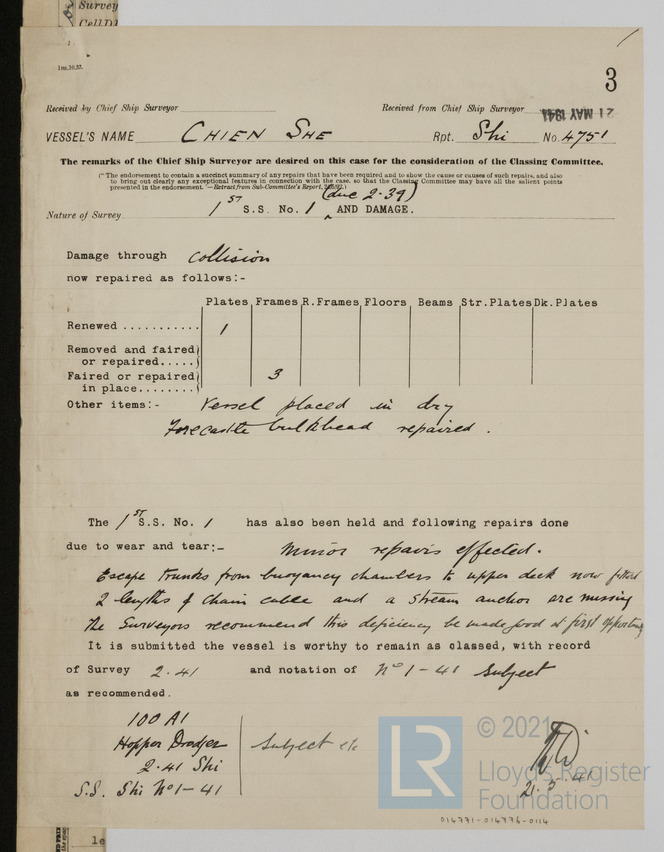 Survey
3
Received by Chief Ship Surveyor
Received from Chief Ship Surveyor 21 MAY 1941
VESSEL'S NAME CHIEN SHE Rpt. Shi No. 4751
The remarks of the Chief Ship Surveyor are desired on this case for the consideration of the Classing Committee.
(" The endorsement to contain a succinct summary of any repairs that have been required and to show the cause or causes of such repairs, and also
to bring out clearly any exceptional features in connection with the case, so that the Classing Committee may have all the salient points
presented in the endorsement."—Extract from Sub-Committee's Report,
(due 2.39)
Nature of Survey 1st S.S. No. 1 AND DAMAGE.
Damage through collision
now repaired as follows:-
Plates Frames R.Frames Floors Beams Str.Plates Dk.Plates
Renewed ........... 1
Removed and faired
or repaired.....
Faired or repaired 3
in place........
Other items:- Vessel placed in dry
Forecastle bulkhead repaired.
The 1st S.S. No. 1 has also been held and following repairs done
due to wear and tear:- Minor repairs effected.
Escape trunks from buoyancy chambers to upper deck now fitted
2 lengths of chain cable and a stream anchor are missing
The Surveyors recommend this deficiency be made good at first opportunity
It is submitted the vessel is worthy to remain as classed, with record
of Survey 2.41 and notation of No 1-41 subject
as recommended.
100 A1
Hopper Dredger Subject etc
2.41 Shi
S.S. Shi No 1-41
21.5.41
LR © 2021
Lloyd's Register
Foundation
014771-014776-0114
le